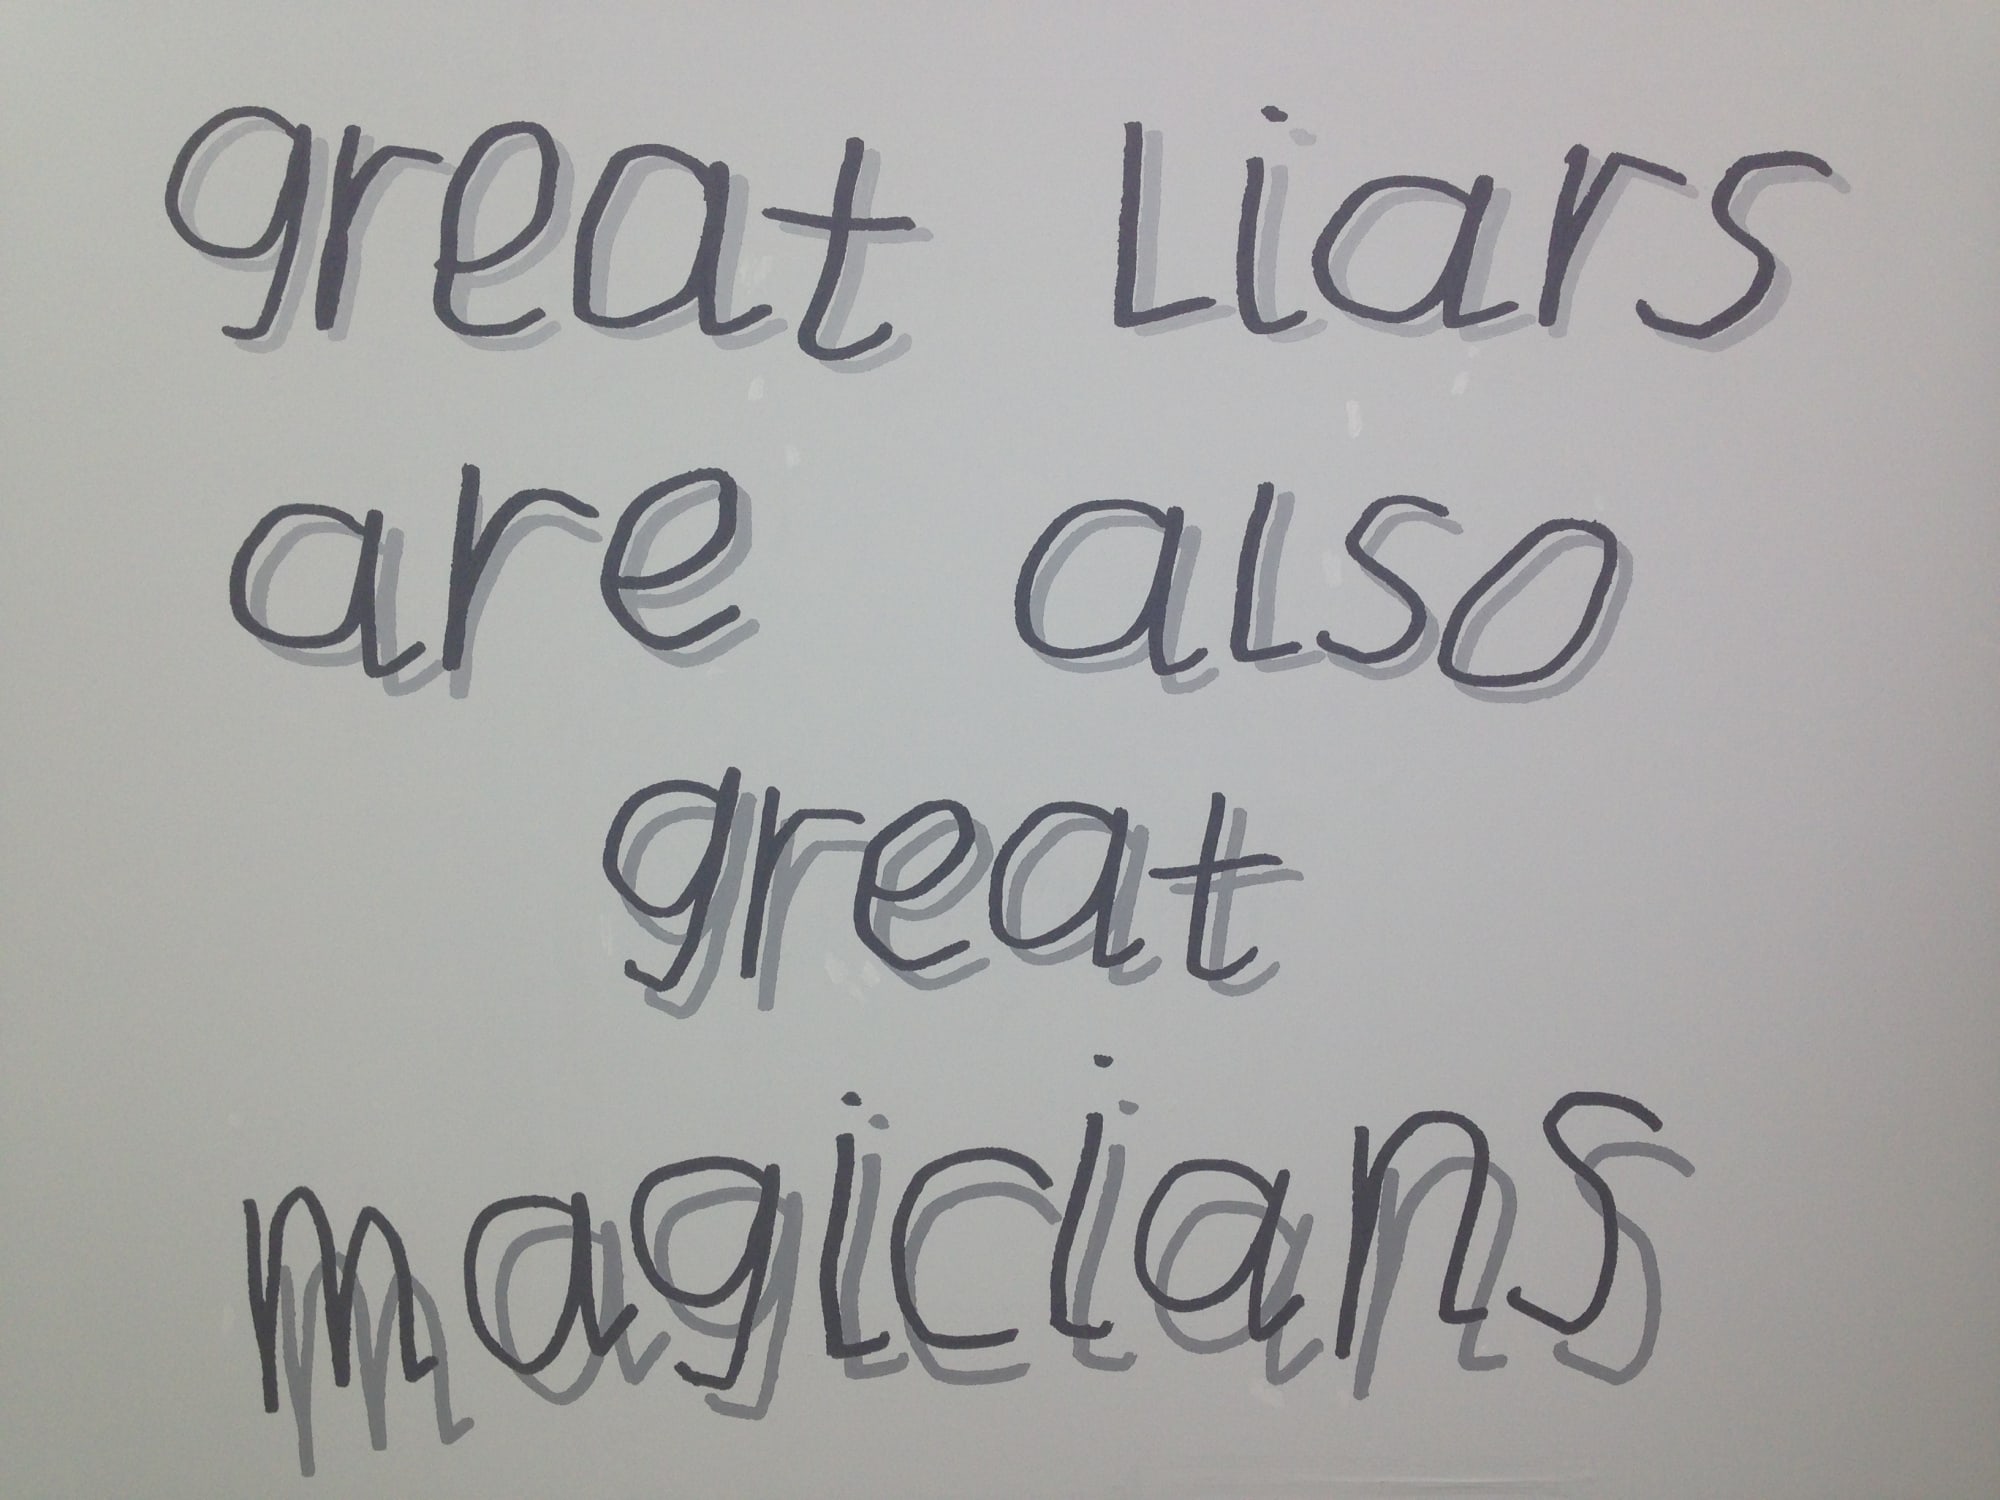 great Liars
are also
great
magicians